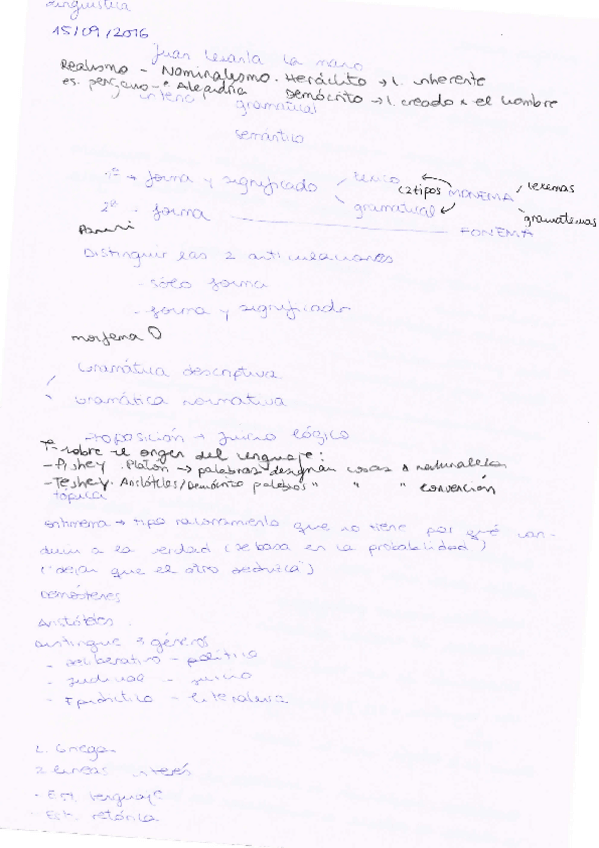 Lingüística
15/09/2016
Juan levanta la mano
Realismo - Nominalismo. Heráclito → l. inherente
es. pérgamo - " Alejandría Demócrito → l. creado x el hombre
gramatical
semántico
1ª → forma y significado léxico (2 tipos MONEMA lexemas
gramatical gramatemas
2ª - forma FONEMA
Panini
Distinguir las 2 articulaciones
- sólo forma
- forma y significado
morfema 0
Gramática descriptiva
Gramática normativa
→oposición → juicio lógico
Tª sobre el origen del lenguaje:
- Fishey . Platón → palabras designan cosas x naturaleza
- Teshey. Aristóteles/Demócrito palabras " " " convención
tópica
entimema → tipo razonamiento que no tiene por qué con-
ducir a la verdad (se basa en la probabilidad)
("dejar que el otro deduzca")
Demóstenes
Aristóteles.
Distingue 3 géneros
- deliberativo - político
- judicial - juicio
- Epidíctico - literatura
L. Griega
2 líneas interés
- Est. lenguaje
- Est. retórica